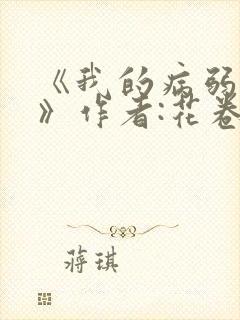 《我的病弱
》作者:花卷
蒋琪